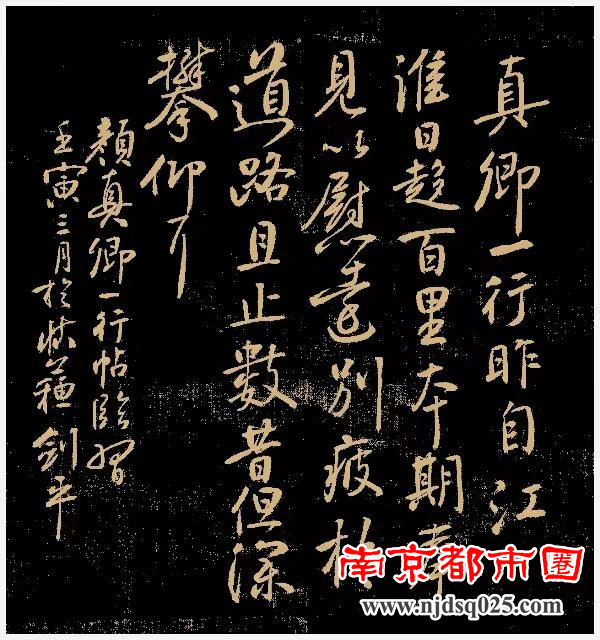 真卿一行昨自江
淮日趍百里本期奉
見以慰遠别疲於
道路且止數昔但深
攀仰耳
顔真卿一行帖臨習
壬寅三月於 剑平
南京都市圈
www.njdsq025.com